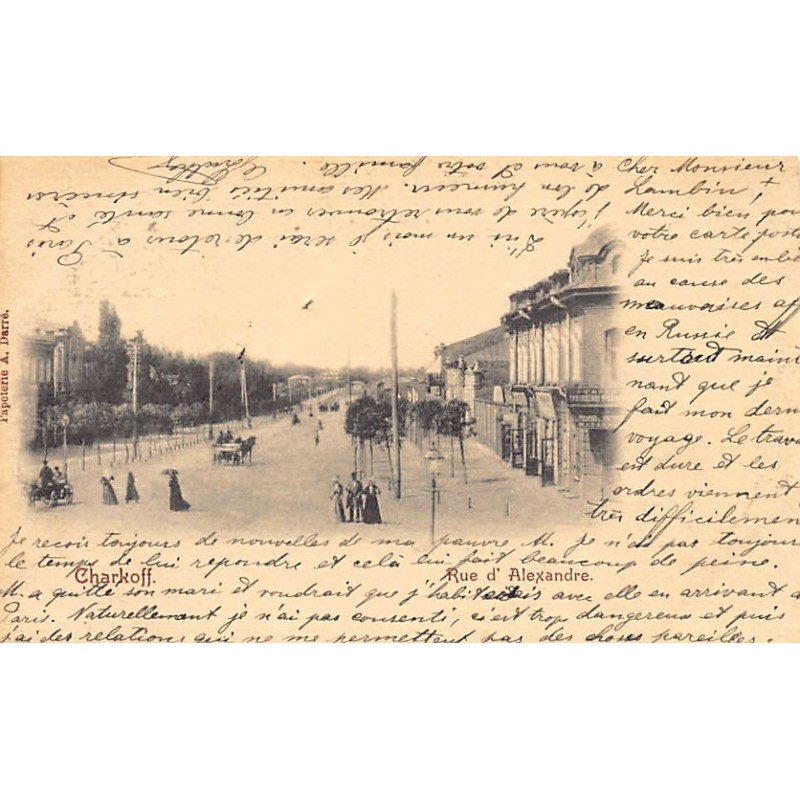 Cher Monsieur
Lambin,
Merci bien pour
votre carte posta
Je suis très embê
au cause des
mauvaises aff
en Russie et
surtout mainte
nant que je
fait mon dern
voyage. Le trava
est dure et les
ordres viennent
très difficilemen
Je recois toujours de nouvelles de ma pauvre M. Je n'ai pas toujour
le temps de lui repondre et celà lui fait beaucoup de peine.
M. a quitté son mari et voudrait que j'habitais avec elle en arrivant à
Paris. Naturellement je n'ai pas consenti, c'est trop dangereux et puis
j'ai des relations qui ne me permettent pas des choses pareilles.
D'ici un mois je serai de retour à Paris
j'espère de vous retrouver en bonne santé et
de bon humeur. Mes amitiés bien sincères
à vous et votre famille.
Charkoff.
Rue d' Alexandre.
Papeterie A. Darré.